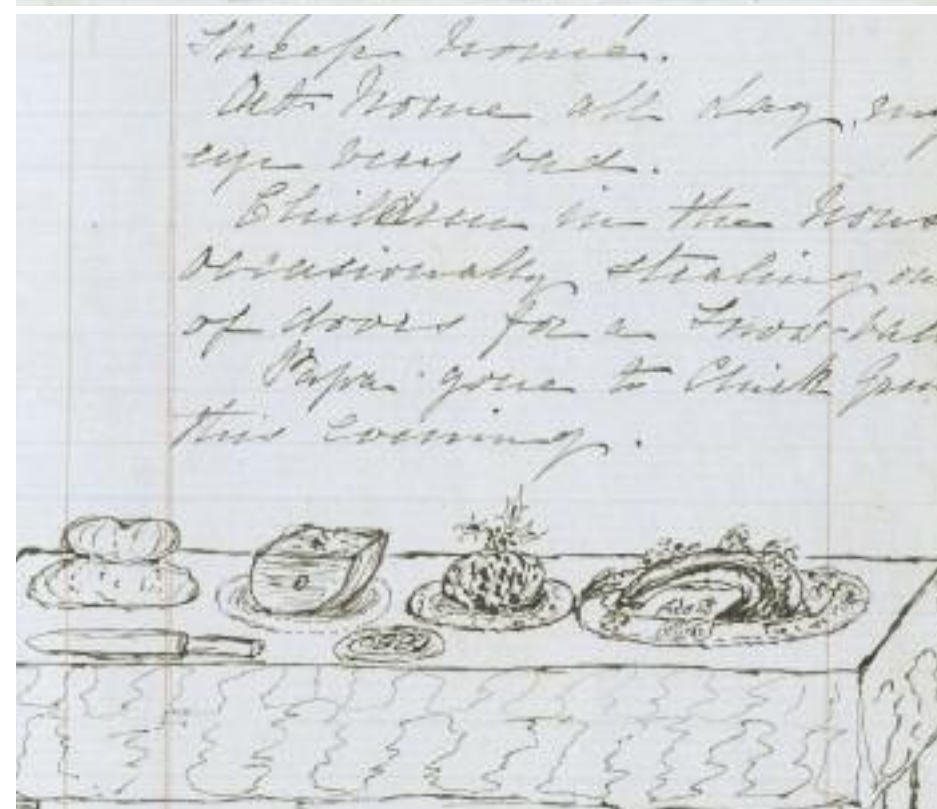 Sheep home.
At home all day, my
eye very bad.
Children in the hous
occasionally stealing ou
of doors for a Snow-ball
Papa gone to Chick
this evening.